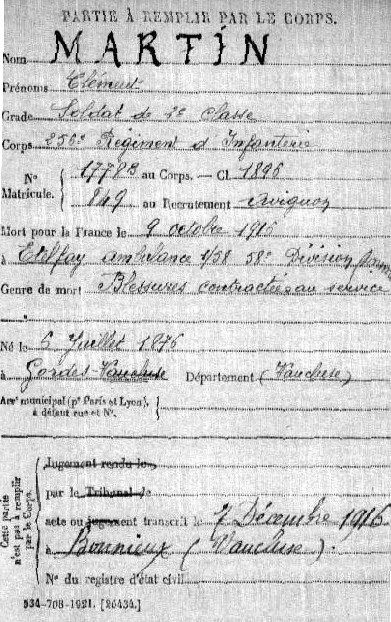 PARTIE À REMPLIR PAR LE CORPS.
Nom MARTIN
Prénoms Clément
Grade Soldat de 2e Classe
Corps 256e Régiment d'Infanterie
N° Matricule. { 17783 au Corps. — Cl. 1896
849 au Recrutement Avignon
Mort pour la France le 9 octobre 1916
à Etelfay ambulance 1/58 58e Division
Genre de mort Blessures contractées au service
Né le 5 Juillet 1876
à Gordes Vaucluse Département (Vaucluse)
Arrt municipal (pr Paris et Lyon), à défaut rue et N°. {
Cette partie n'est pas à remplir par le Corps.
Jugement rendu le
par le Tribunal de
acte ou jugement transcrit le 7 Décembre 1916
à Bonnieux (Vaucluse).
N° du registre d'état civil
534-708-1921. [26434.]